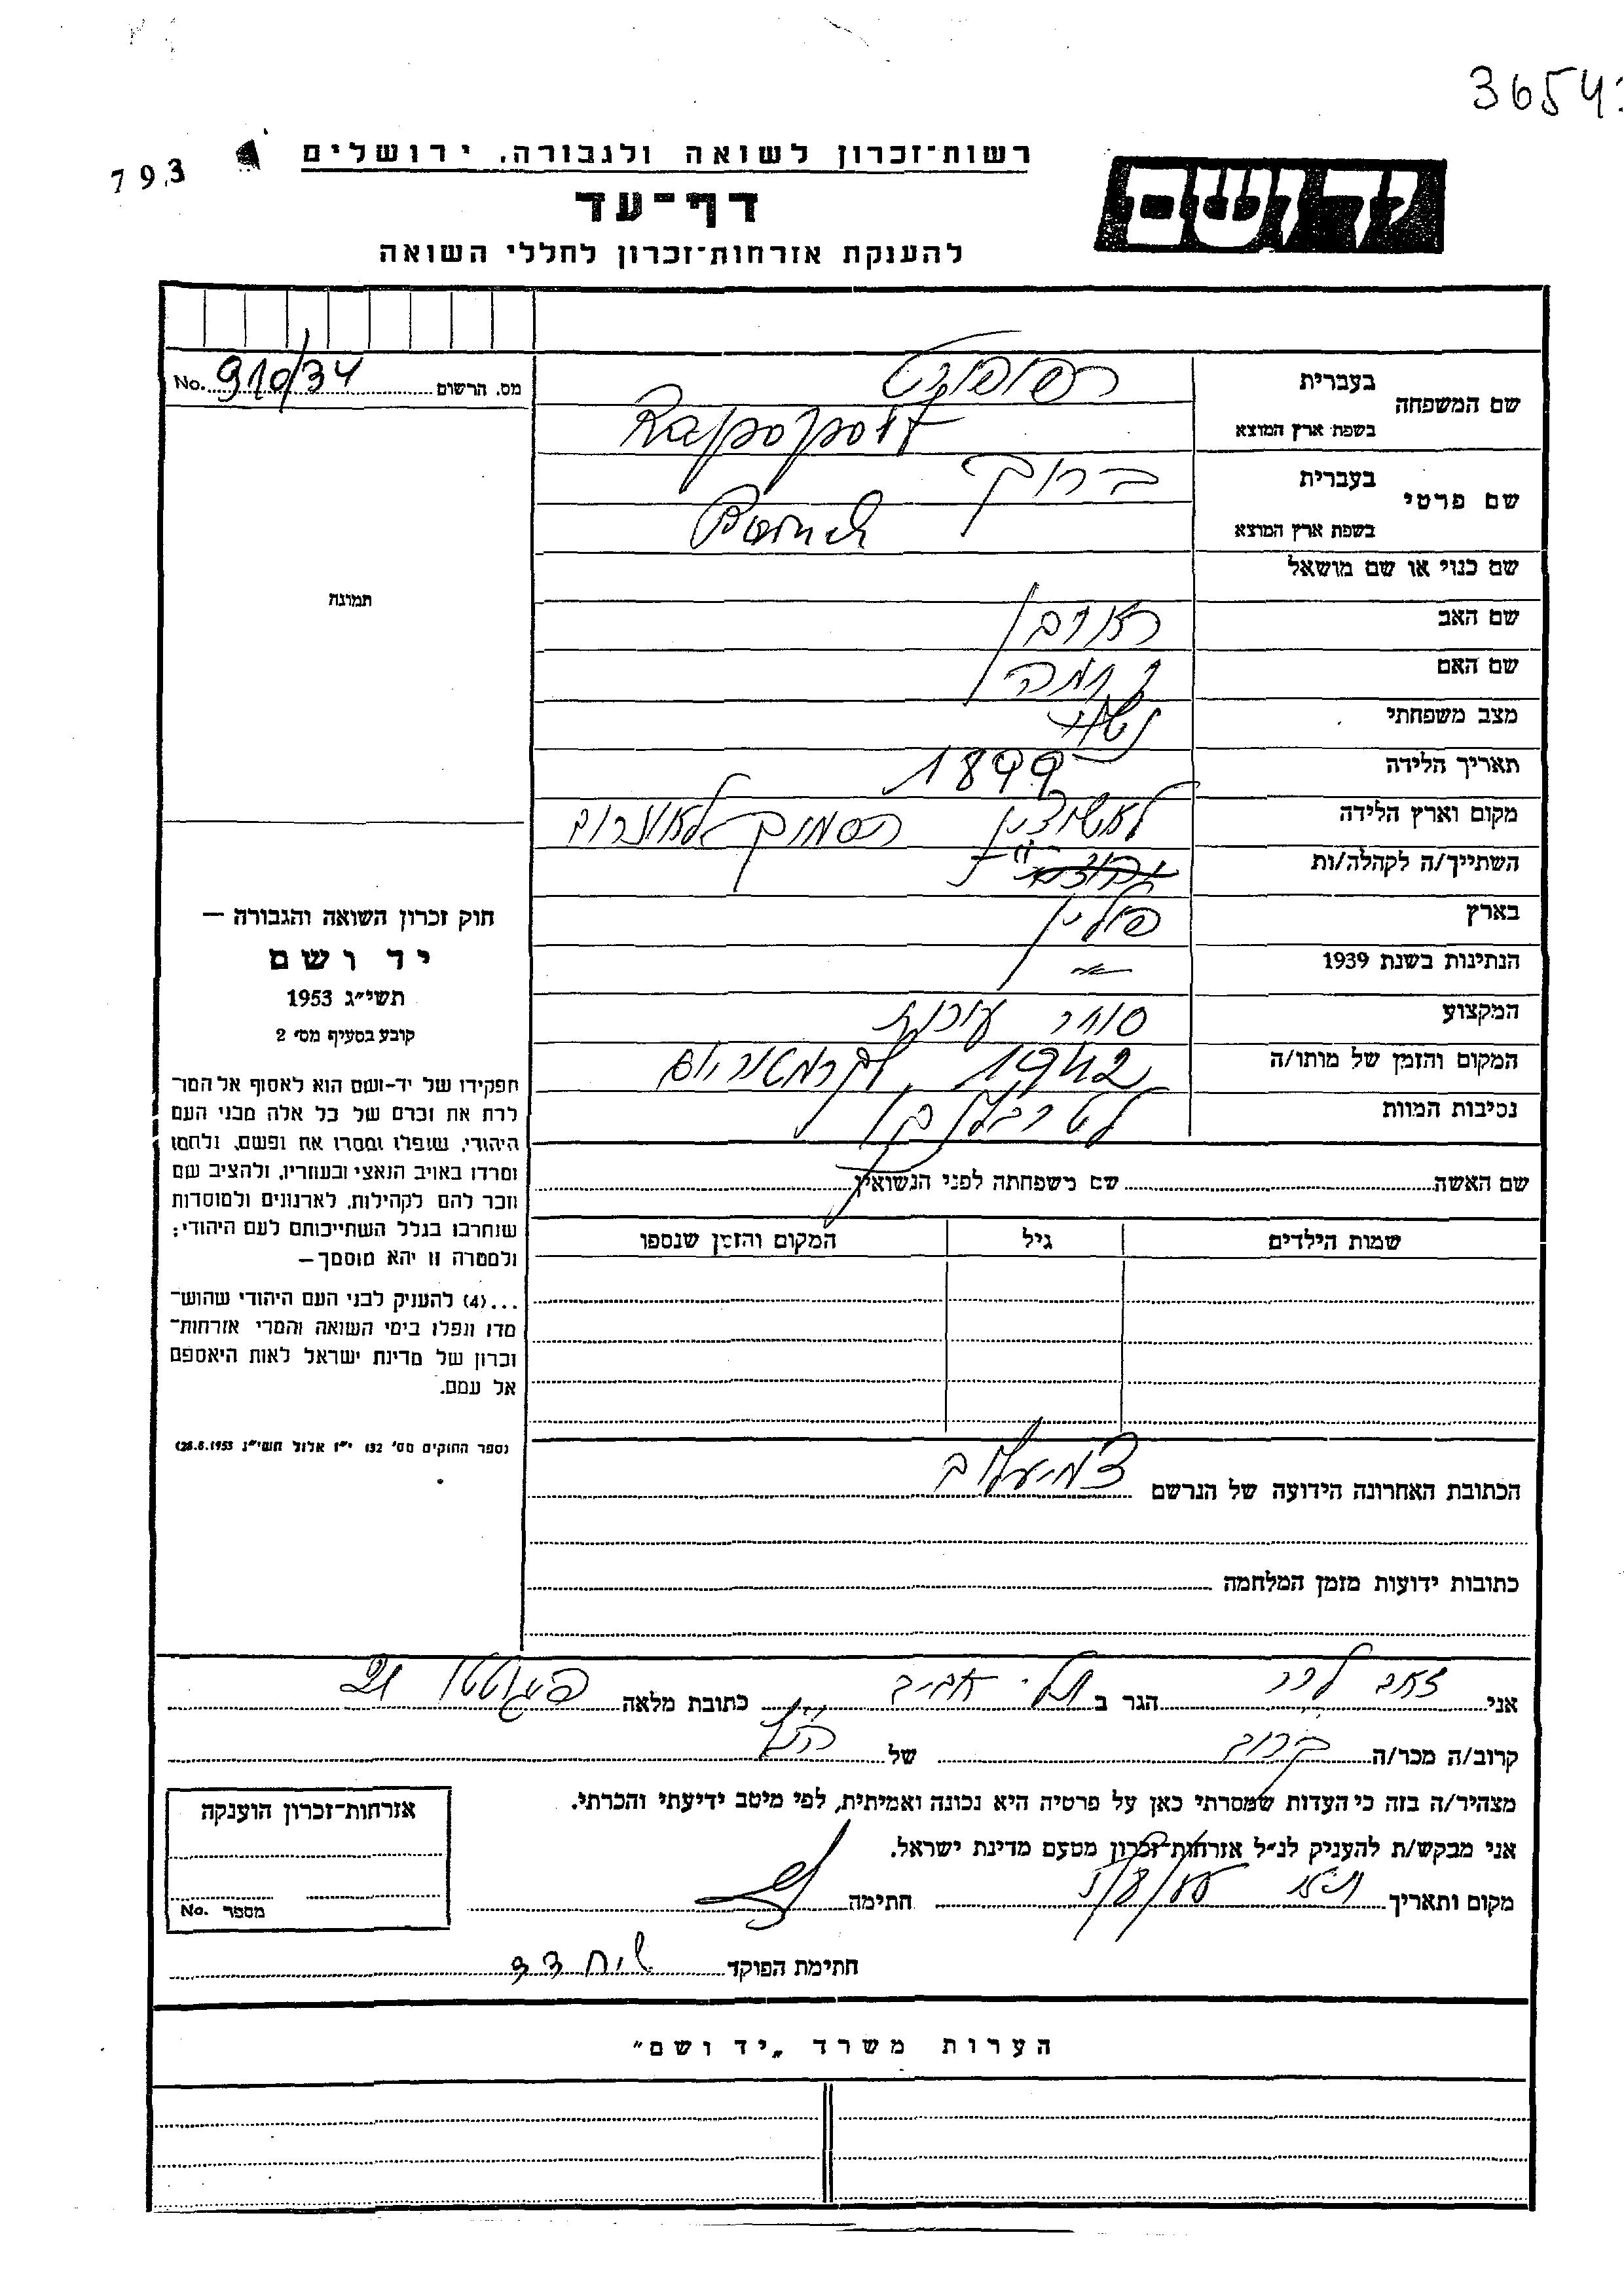 3654
793
רשות־זכרון לשואה ולגבורה, ירושלים
דף־עד
להענקת אזרחות־זכרון לחללי השואה
יד ושם
מס. הרשום 910/34 No.
שם המשפחה
בעברית רפופורט
בשפת ארץ המוצא Rapoport
שם פרטי
בעברית ברוך
בשפת ארץ המוצא Boruch
שם כנוי או שם מושאל
שם האב ראובן
שם האם נחמה
מצב משפחתי נשוי
תאריך הלידה 1899
מקום וארץ הלידה הסמוך
השתייך/ה לקהלה/ות
בארץ פולין
הנתינות בשנת 1939
המקצוע סוחר עורות
המקום והזמן של מותו/ה 1942
נסיבות המוות
תמונה
חוק זכרון השואה והגבורה —
יד ושם
תשי״ג 1953
קובע בסעיף מס׳ 2
תפקידו של יד-ושם הוא לאסוף אל המו־
לדת את זכרם של כל אלה מבני העם
היהודי, שנפלו ומסרו את נפשם, נלחמו
ומרדו באויב הנאצי ובעוזריו, ולהציב שם
וזכר להם לקהילות, לארגונים ולמוסדות
שנחרבו בגלל השתייכותם לעם היהודי;
ולמטרה זו יהא מוסמך —
...(4) להעניק לבני העם היהודי שהוש־
מדו ונפלו בימי השואה והמרי אזרחות־
זכרון של מדינת ישראל לאות היאספם
אל עמם.
(ספר החוקים מס׳ 132 י״ז אלול תשי״ג 28.8.1953)
שם האשה שם משפחתה לפני הנשואין
שמות הילדים גיל המקום והזמן שנספו
הכתובת האחרונה הידועה של הנרשם
כתובות ידועות מזמן המלחמה
אני זאב לרר הגר ב תל־אביב כתובת מלאה
קרוב/ה מכר/ה קרוב של הנ״ל
מצהיר/ה בזה כי העדות שמסרתי כאן על פרטיה היא נכונה ואמיתית, לפי מיטב ידיעתי והכרתי.
אני מבקש/ת להעניק לנ״ל אזרחות־זכרון מטעם מדינת ישראל.
מקום ותאריך ת״א חתימה
חתימת הפוקד
אזרחות־זכרון הוענקה
מספר No.
הערות משרד „יד ושם״